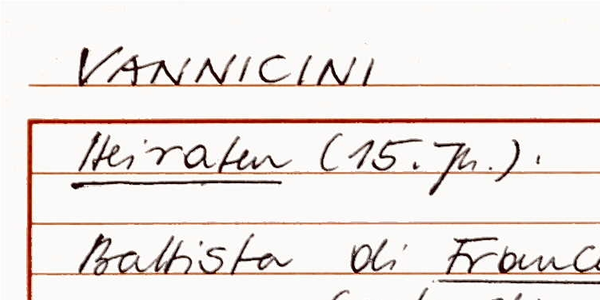 VANNICINI
Heiraten (15. Jh.).
Battista di Franc